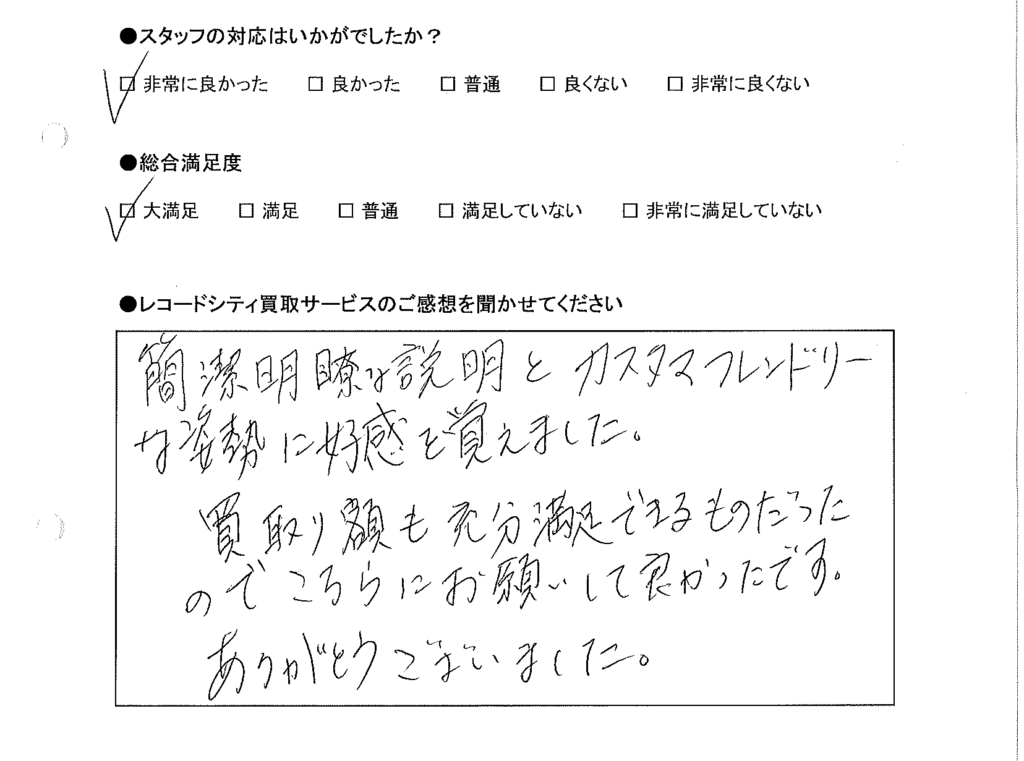 ●スタッフの対応はいかがでしたか？
□ 非常に良かった □ 良かった □ 普通 □ 良くない □ 非常に良くない
●総合満足度
□ 大満足 □ 満足 □ 普通 □ 満足していない □ 非常に満足していない
●レコードシティ買取サービスのご感想を聞かせてください
簡潔明瞭な説明とカスタマフレンドリー
な姿勢に好感を覚えました。
買取り額も充分満足できるものだった
のでこちらにお願いして良かったです。
ありがとうございました。